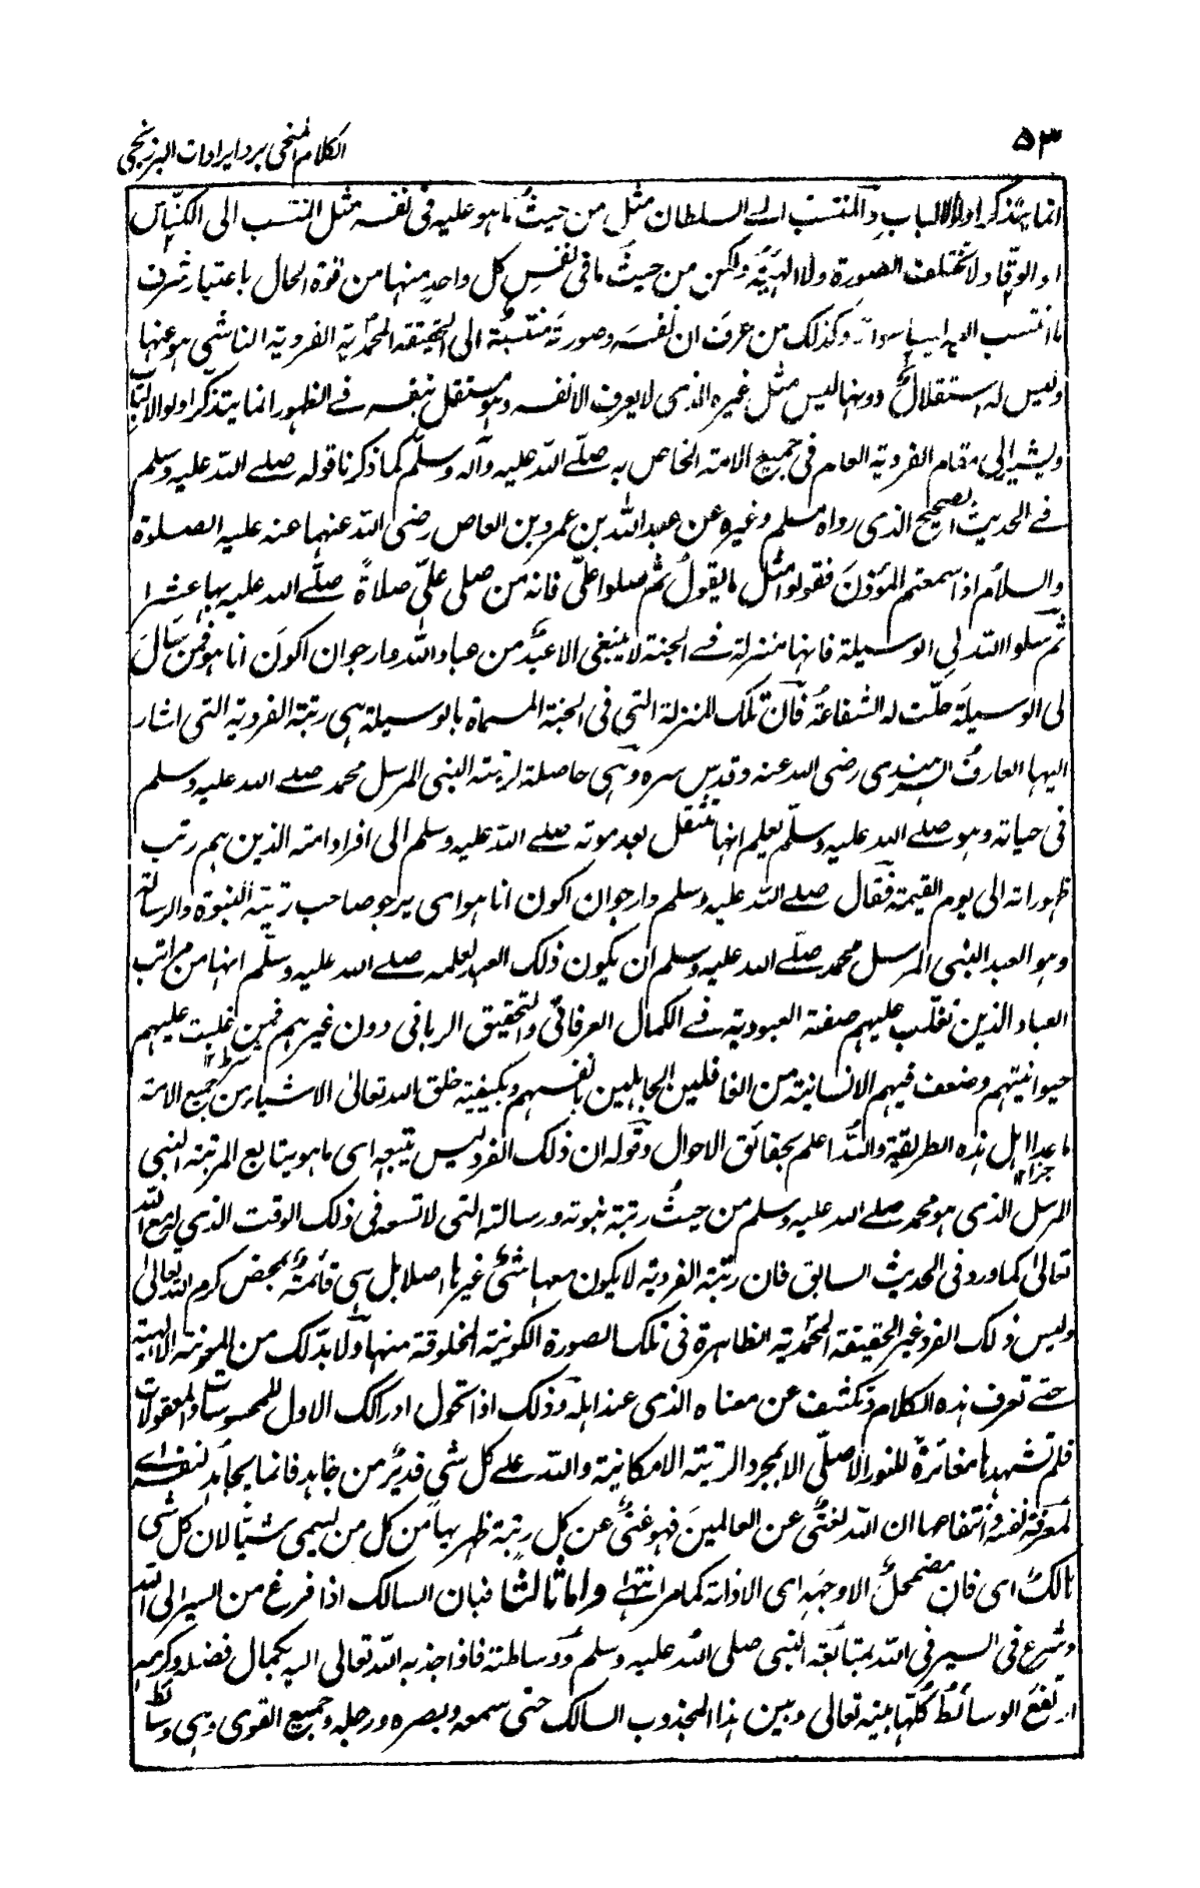 ٥٣
الكلام المنجى برد ايرادات البرزنجى
انما يتذكر اولو الالباب والمنتسب الى السلطان مثل من حيث ما هو عليه فى نفسه مثل المنتسب الى الكناس
او الوقاد لا تختلف الصورة ولا الهيئة ولكن من حيث ما فى نفس كل واحد منهما من قوة الحال باعتبار شرف
ما انتسب اليه ليسا سواء وكذلك من عرف ان نفسه وصورته منتسبة الى الحقيقة المحمدية الفردية الناشى هو عنها
وليس له استقلال دونها ليس مثل غيره الذى لا يعرف الا نفسه وهو مستقل بنفسه فى الظهور انما يتذكر اولوا الالباب
ويشير الى مقام الفردية العام فى جميع الامة الخاص به صلى الله عليه وآله وسلم كما ذكرنا قوله صلى الله عليه وسلم
فى الحديث الصحيح الذى رواه مسلم وغيره عن عبد الله بن عمرو بن العاص رضى الله عنهما عنه عليه الصلوة
والسلام اذا سمعتم المؤذن فقولوا مثل ما يقول ثم صلوا على فانه من صلى على صلاة صلى الله عليه بها عشرا
ثم سلوا الله لى الوسيلة فانها منزلة فى الجنة لا ينبغى الا عبد من عباد الله وارجو ان اكون انا هو فمن سال
لى الوسيلة حلت له الشفاعة فان تلك المنزلة التى فى الجنة المسماة بالوسيلة هى رتبة الفردية التى اشار
اليها العارف السرهندى رضى الله عنه وقدس سره وهى حاصلة لرتبته النبى المرسل محمد صلى الله عليه وسلم
فى حياته وهو صلى الله عليه وسلم يعلم انها تنتقل بعد موته صلى الله عليه وسلم الى افراد امته الذين هم رتب
ظهوراته الى يوم القيمة فقال صلى الله عليه وسلم وارجو ان اكون انا هو اى يرجو صاحب رتبة النبوة والرسالة
وهو العبد النبى المرسل محمد صلى الله عليه وسلم ان يكون ذلك العبد لعلمه صلى الله عليه وسلم انها من مراتب
العباد الذين تغلب عليهم صفة العبودية فى الكمال العرفانى والتحقيق الربانى دون غيرهم فمن غلبت عليهم
حيوانيتهم وضعف فيهم الانسانية من الغافلين الجاهلين بانفسهم وبكيفية خلق الله تعالى الاشياء من جميع الامة
ما عدا اهل هذه الطريقة والله اعلم بحقائق الاحوال وقوله ان ذلك الفرد ليس يتبعه اى ما هو يتابع المرتبة النبى
المرسل الذى هو محمد صلى الله عليه وسلم من حيث رتبة نبوته ورسالته التى لا تسعه فى ذلك الوقت الذى له مع الله
تعالى كما ورد فى الحديث السابق فان رتبة الفردية لا يكون معها شئ غيرها اصلا بل هى قائمة بمحض كرم الله تعالى
وليس ذلك الفرد غير الحقيقة المحمدية الظاهرة فى تلك الصورة الكونية المخلوقة منها ولا بد لك من المعونة الالهية
حتى تعرف هذه الكلام وتكشف عن معناه الذى عند اهله وذلك اذا تحول ادراكك الاول للمحسوسات والمعقولات
فلم تشهدها مغائرة للنور الاصلى الا بمجرد الرتبة الامكانية والله على كل شئ قدير من جاهد فانما يجاهد لنفسه اى
لمعرفة نفسه وانتفاعها ان الله لغنى عن العالمين فهو غنى عن كل رتبة ظهر بها من كل من يسمى شيئا لان كل شئ
هالك اى فان مضمحل الا وجهه اى الا ذاته كما مر انتهى واما ثالثا فبان السالك اذا فرغ من السير الى الله
وشرع فى السير فى الله بمتابعة النبى صلى الله عليه وسلم ووساطته فاذا جذبه الله تعالى اليه بكمال فضله وكرمه
ارتفع الوسائط كلها بينه تعالى وبين هذا المجذوب السالك حتى سمعه وبصره ورجله وجميع القوى وهى وسائط